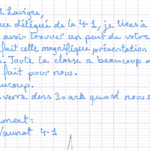 Lavigne,
ue délégué de la 4-1, je tiens à
avoir trouver un peu de votre
fait cette magnifique présentation
. Toute la classe a beaucoup a
fait pour nous.
ucoup.
verra dans 30 ans quand nous
ment:
aunat 4-1